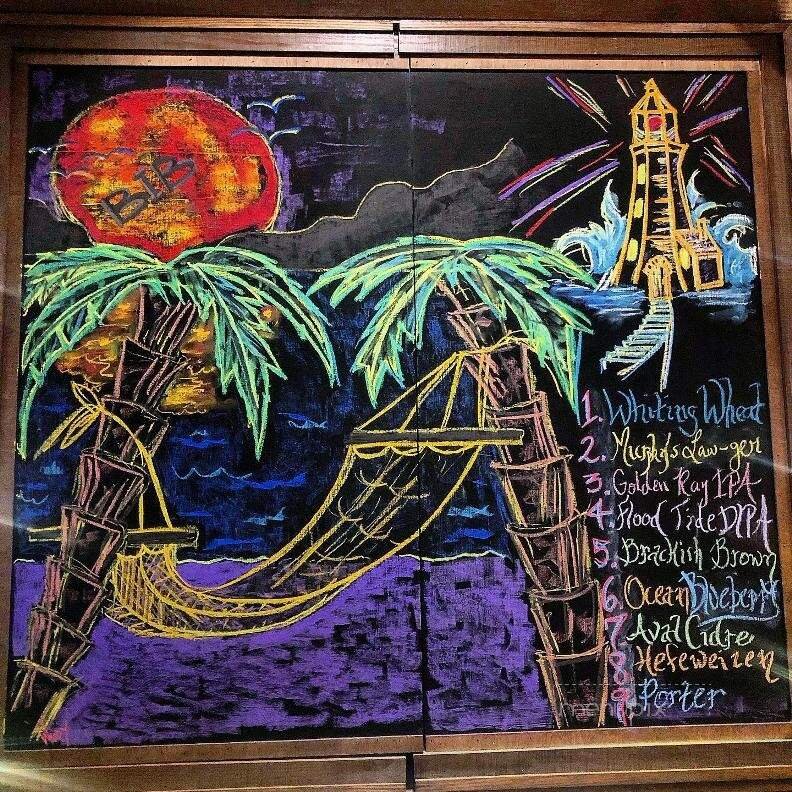 BIB
1. Whiting Wheat
2. Murphys Law-ger
3. Golden Ray IPA
4. Flood Tide DIPA
5. Brackish Brown
6. Ocean Blueberry
7 Aval Cidre
8 Hefeweizen
9 Porter